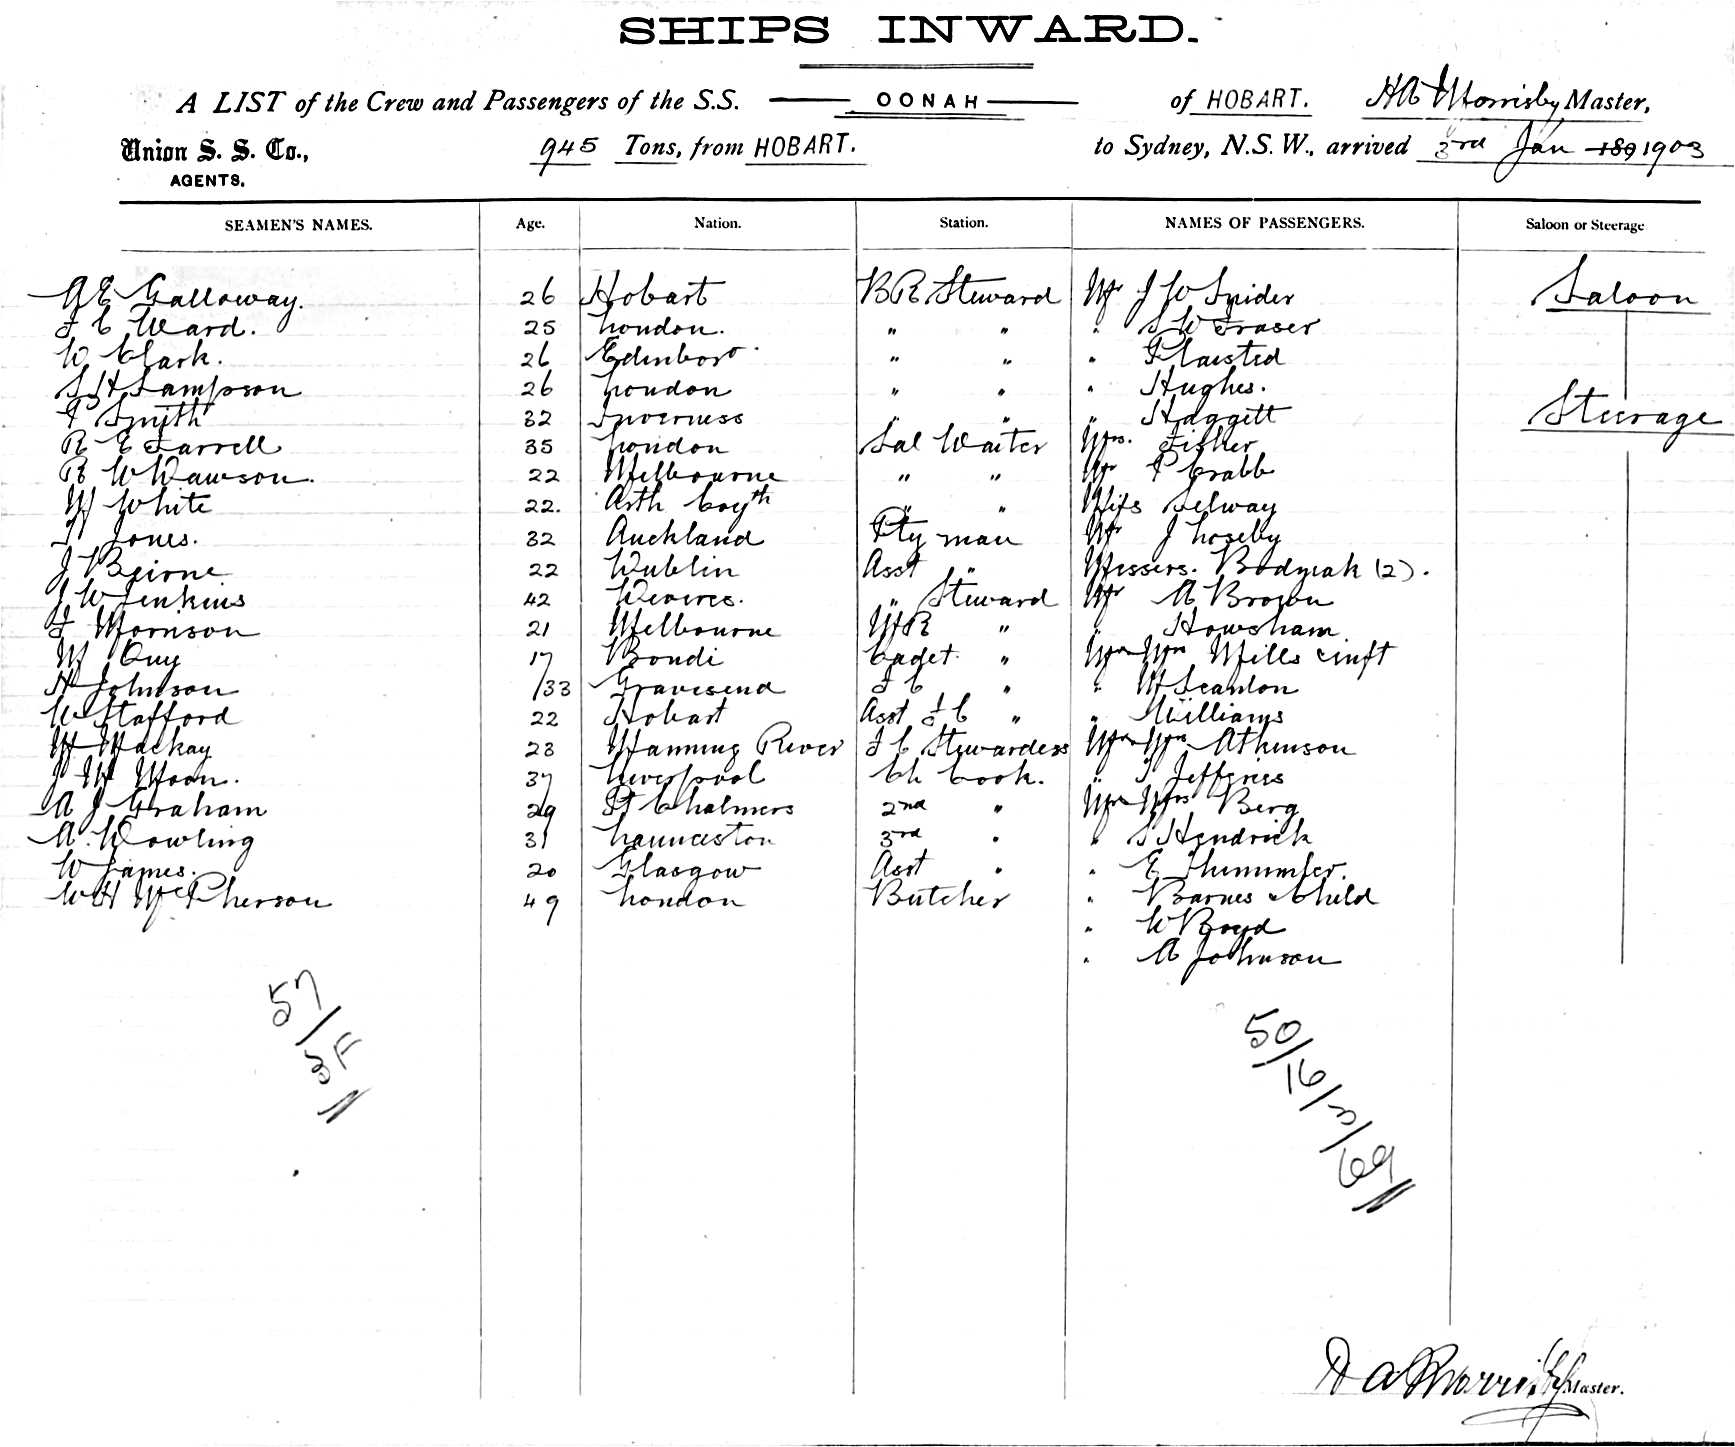 SHIPS INWARD.
A LIST of the Crew and Passengers of the S.S. OONAH of HOBART. HA Morrisby Master,
Union S. S. Co., 945 Tons, from HOBART. to Sydney, N.S.W., arrived 3rd Jan 189 1903
AGENTS.
SEAMEN'S NAMES. Age. Nation. Station. NAMES OF PASSENGERS. Saloon or Steerage
A E Galloway. 26 Hobart BR Steward Mr J W Snider Saloon
F C Ward. 25 London. " " " S W Fraser
W Clark. 26 Edinboro " " " Plaisted
S H Sampson 26 London " " " Hughes.
F Smith 32 Inverness " " " Haggett Steerage
R E Farrell 35 London Sal Waiter Mrs. Fisher
R W Dawson. 22 Melbourne " " Mr P Crabb
M White 22. " " Miss Selway
Jones. 32 Auckland Pty man Mr J Loseby
J Beirne 22 Dublin Asst " Messers. (2).
J W Jenkins 42 " Steward Mr A Brown
F Morrison 21 Melbourne " " Howsham.
M Quy 17 Bondi Cadet. " Mr Mrs Mills & inft
H Johnson 33 Gravesend F C " " M Scanlon
W Stafford 22 Hobart Asst F C " " Williams
M Mackay 28 Manning River F C Stewardess Mr Mrs Atkinson
J M Moon. 37 Liverpool Ch Cook. " Jefferies
A J Graham 29 Pt Chalmers 2nd " Mr Mrs Berg
A. Dowling 31 Launceston 3rd " " S Hendrick
W James. 20 Glasgow Asst " " E
W H McPherson 49 London Butcher " Barnes & Child
" W Boyd
" A Johnson
57/
3F
50/
16/
3/
69
H A Morrisby Master.